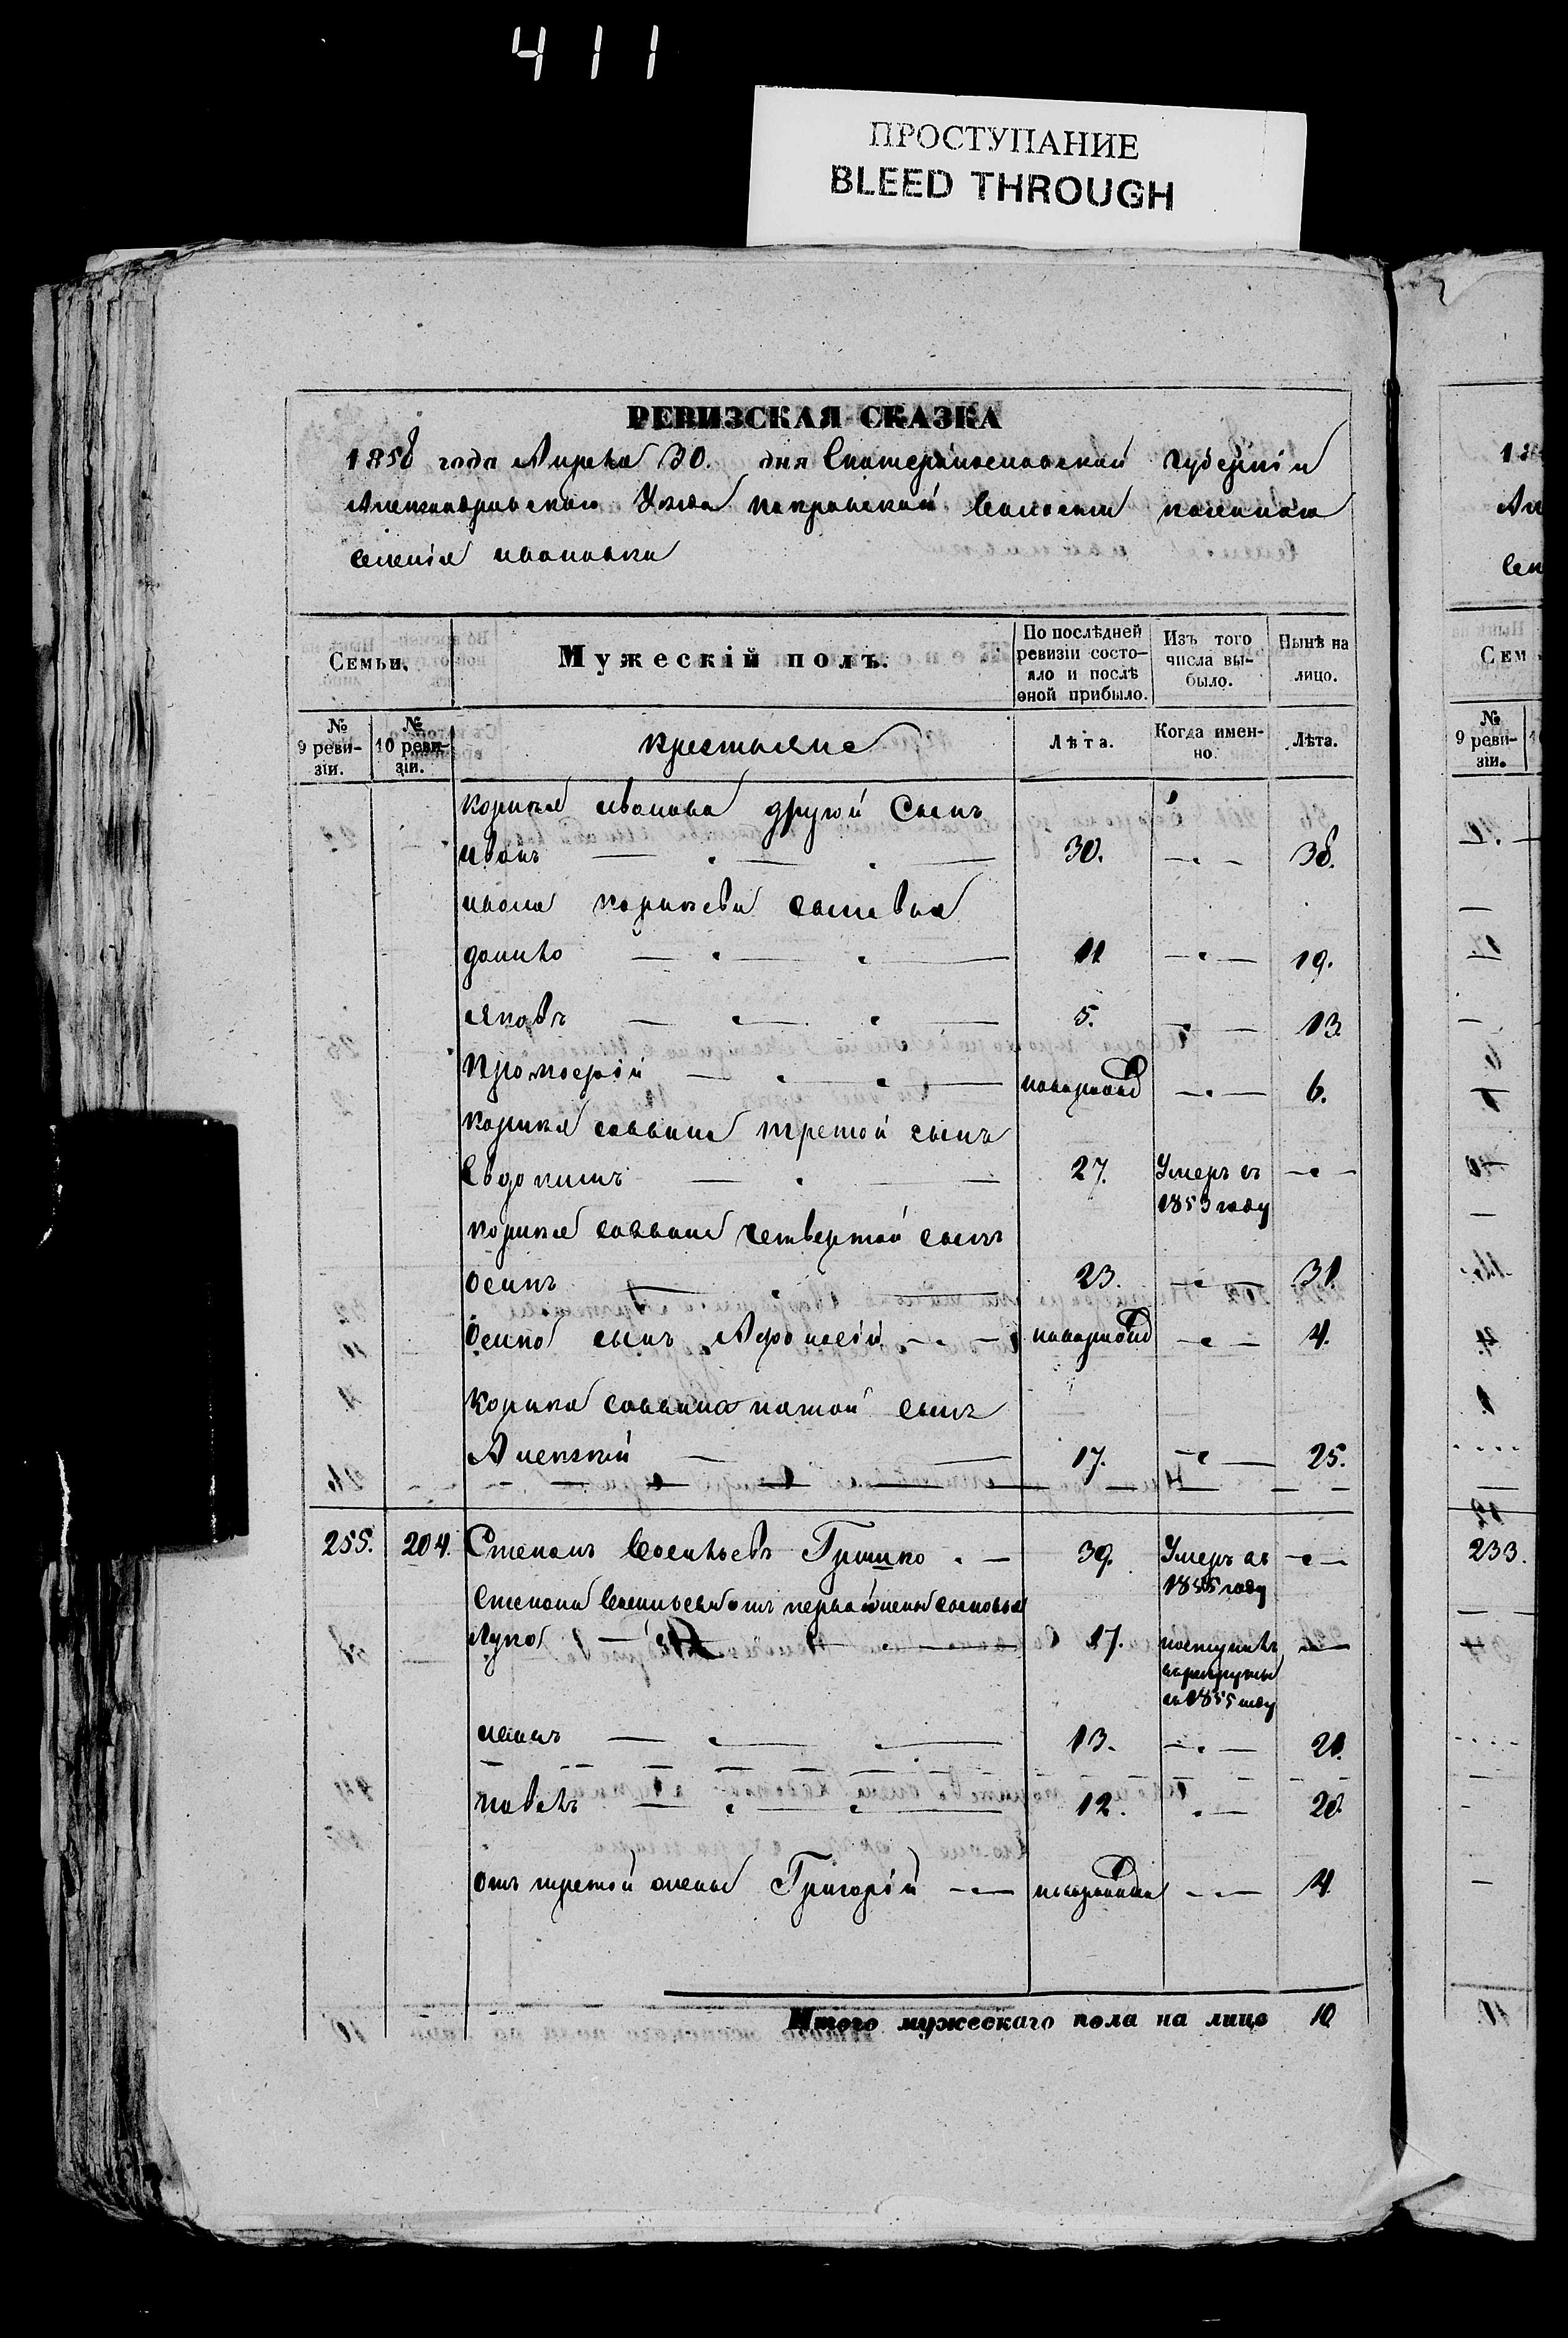 411
ПРОСТУПАНИЕ
BLEED THROUGH
РЕВИЗСКАЯ СКАЗКА
1858 года Апреля 30. дня Екатеринославской губернiи
Александровскаго Уезда покровской Волости казеннаго
селенiя ивановки
Семьи. Мужескiй полъ. По послѣдней ревизiи состояло и послѣ оной прибыло. Изъ того числа выбыло. Нынѣ на лицо.
№ 9 ревизiи. № 10 ревизiи. крестьяне Лѣта. Когда именно. Лѣта.
другой Сынъ
иванъ 30. 38.
ивана сыновья
данило 11 19.
яковъ 5. 13.
6.
саввина третой сынъ
Евдокимъ 27. Умеръ въ
1853 году
саввина четвертой сынъ
осипъ 23. 31.
осипа сынъ Афонасiй 4.
саввина пятой сынъ
Алексей 17. 25.
255. 204. Степанъ Васильевъ Гришко 39. Умеръ въ
1855 году
Степана Васильева отъ первой жены сыновья
лука 17. поступилъ
в рекруты
въ 1855 году
иванъ 13. 21.
павелъ 12. 20.
отъ третой жены Григорiй 4.
Итого мужескаго пола на лицо 10
1
Ал
Сем
№
9 ревизiи.
233.